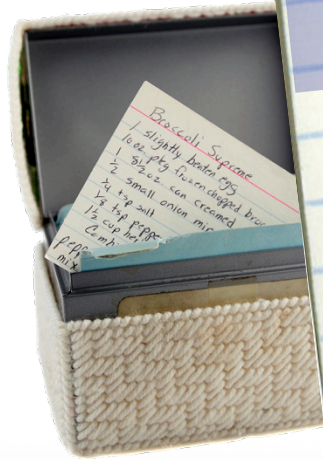 Broccoli Supreme
1 slightly beaten egg
10 oz. pkg frozen chopped broc
1 8 1/2 oz. can creamed
1/2 small onion min
1/4 tsp salt
1/8 tsp peppe
1 1/2 cup her
Comb
pepp
mix